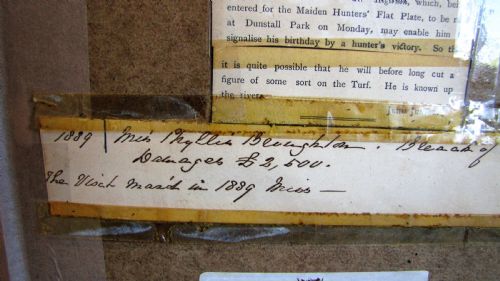 which, bei
entered for the Maiden Hunters' Flat Plate, to be ru
at Dunstall Park on Monday, may enable him
signalise his birthday by a hunter's victory. So th
it is quite possible that he will before long cut a
figure of some sort on the Turf. He is known up
the river
1889 Miss Phyllis Broughton. Breach of
Damages £2,500.
The Visit march in 1889 Miss —